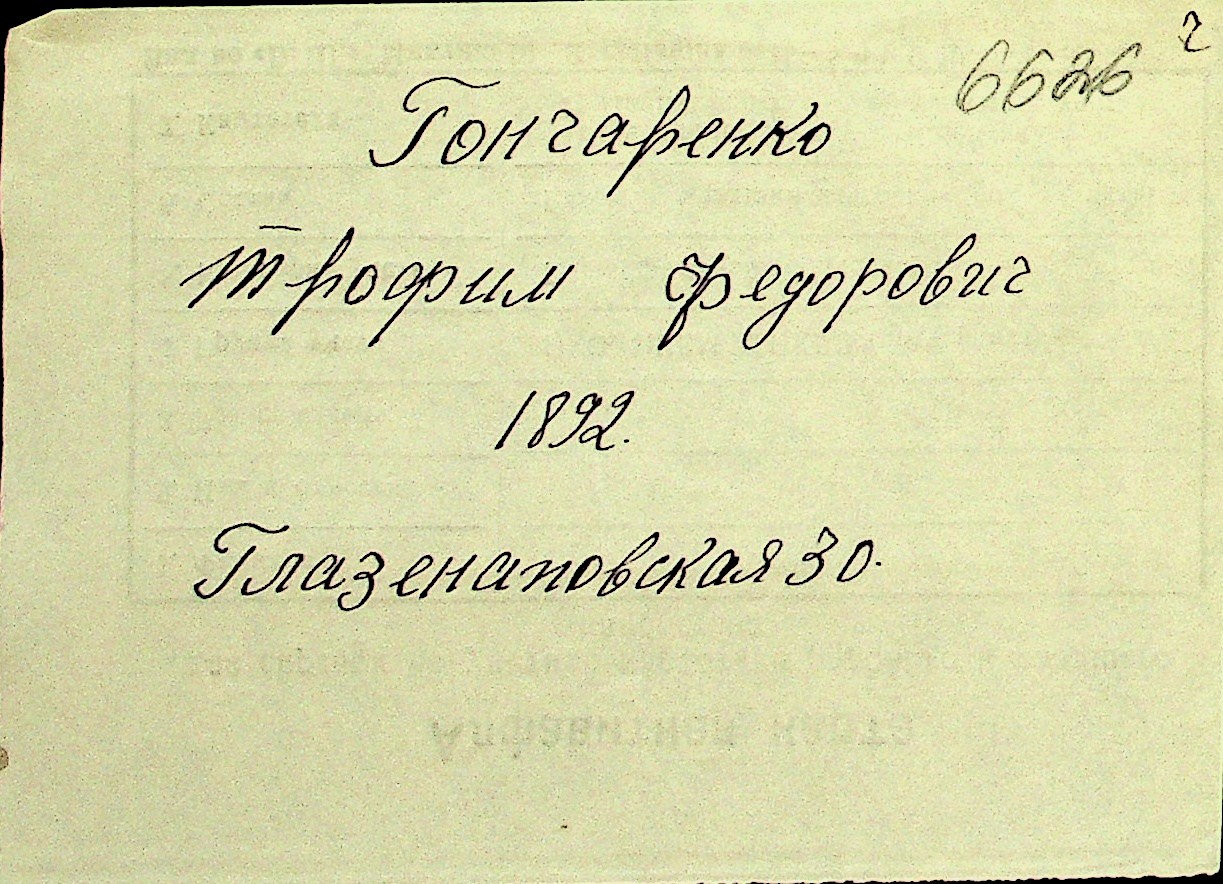 6626
Гончаренко
Трофим Федорович
1892.
Глазенаповская 30.